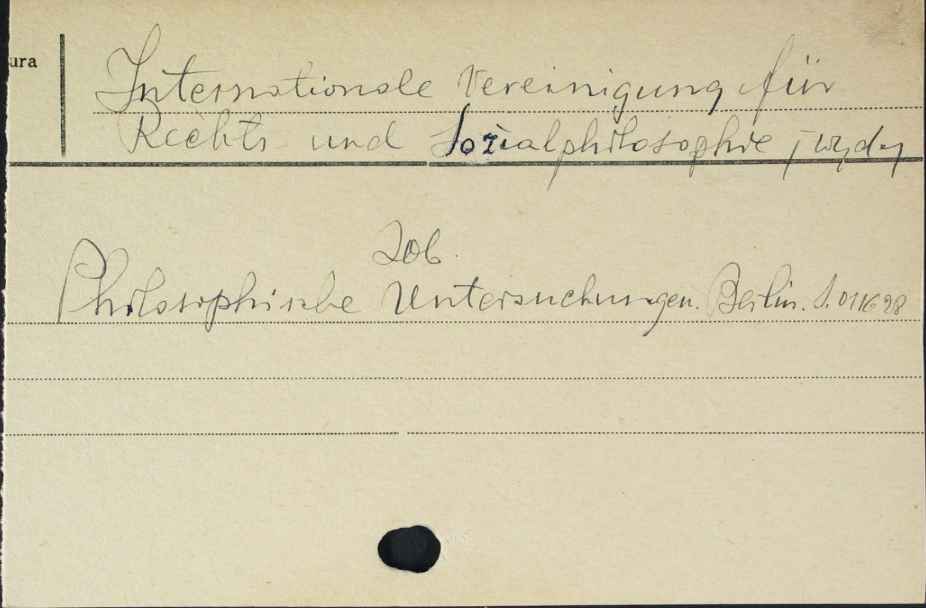 ura
Internationale Vereinigung für
Rechts- und Sozialphilosophie, wyd.
Zob.
Philosophische Untersuchungen. Berlin.